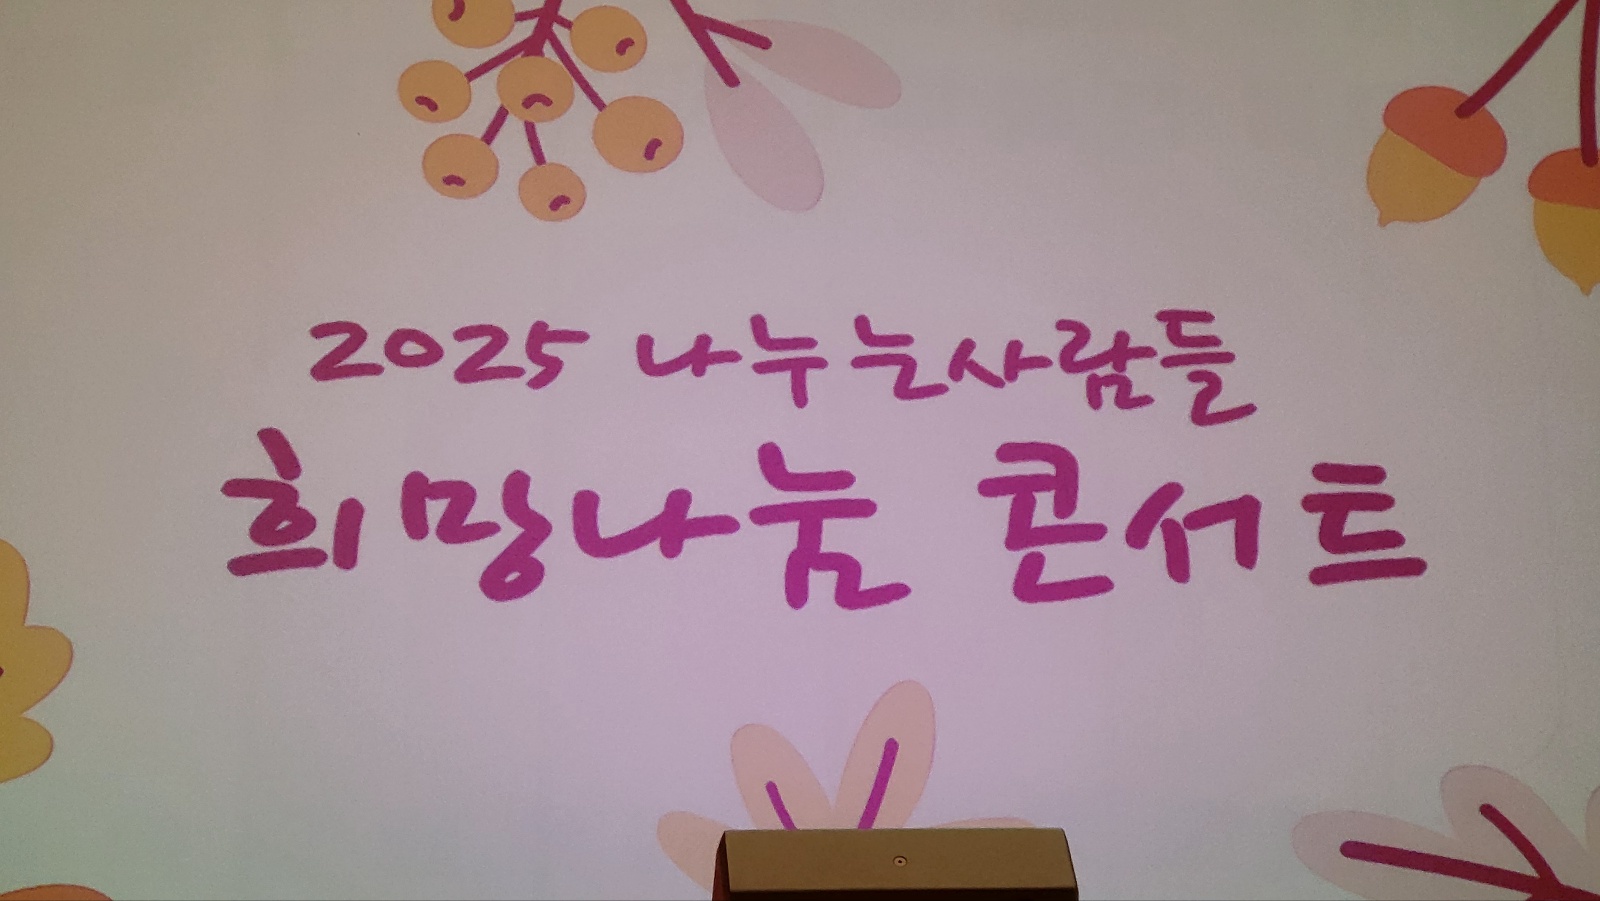 2025 나누는사람들
희망나눔 콘서트